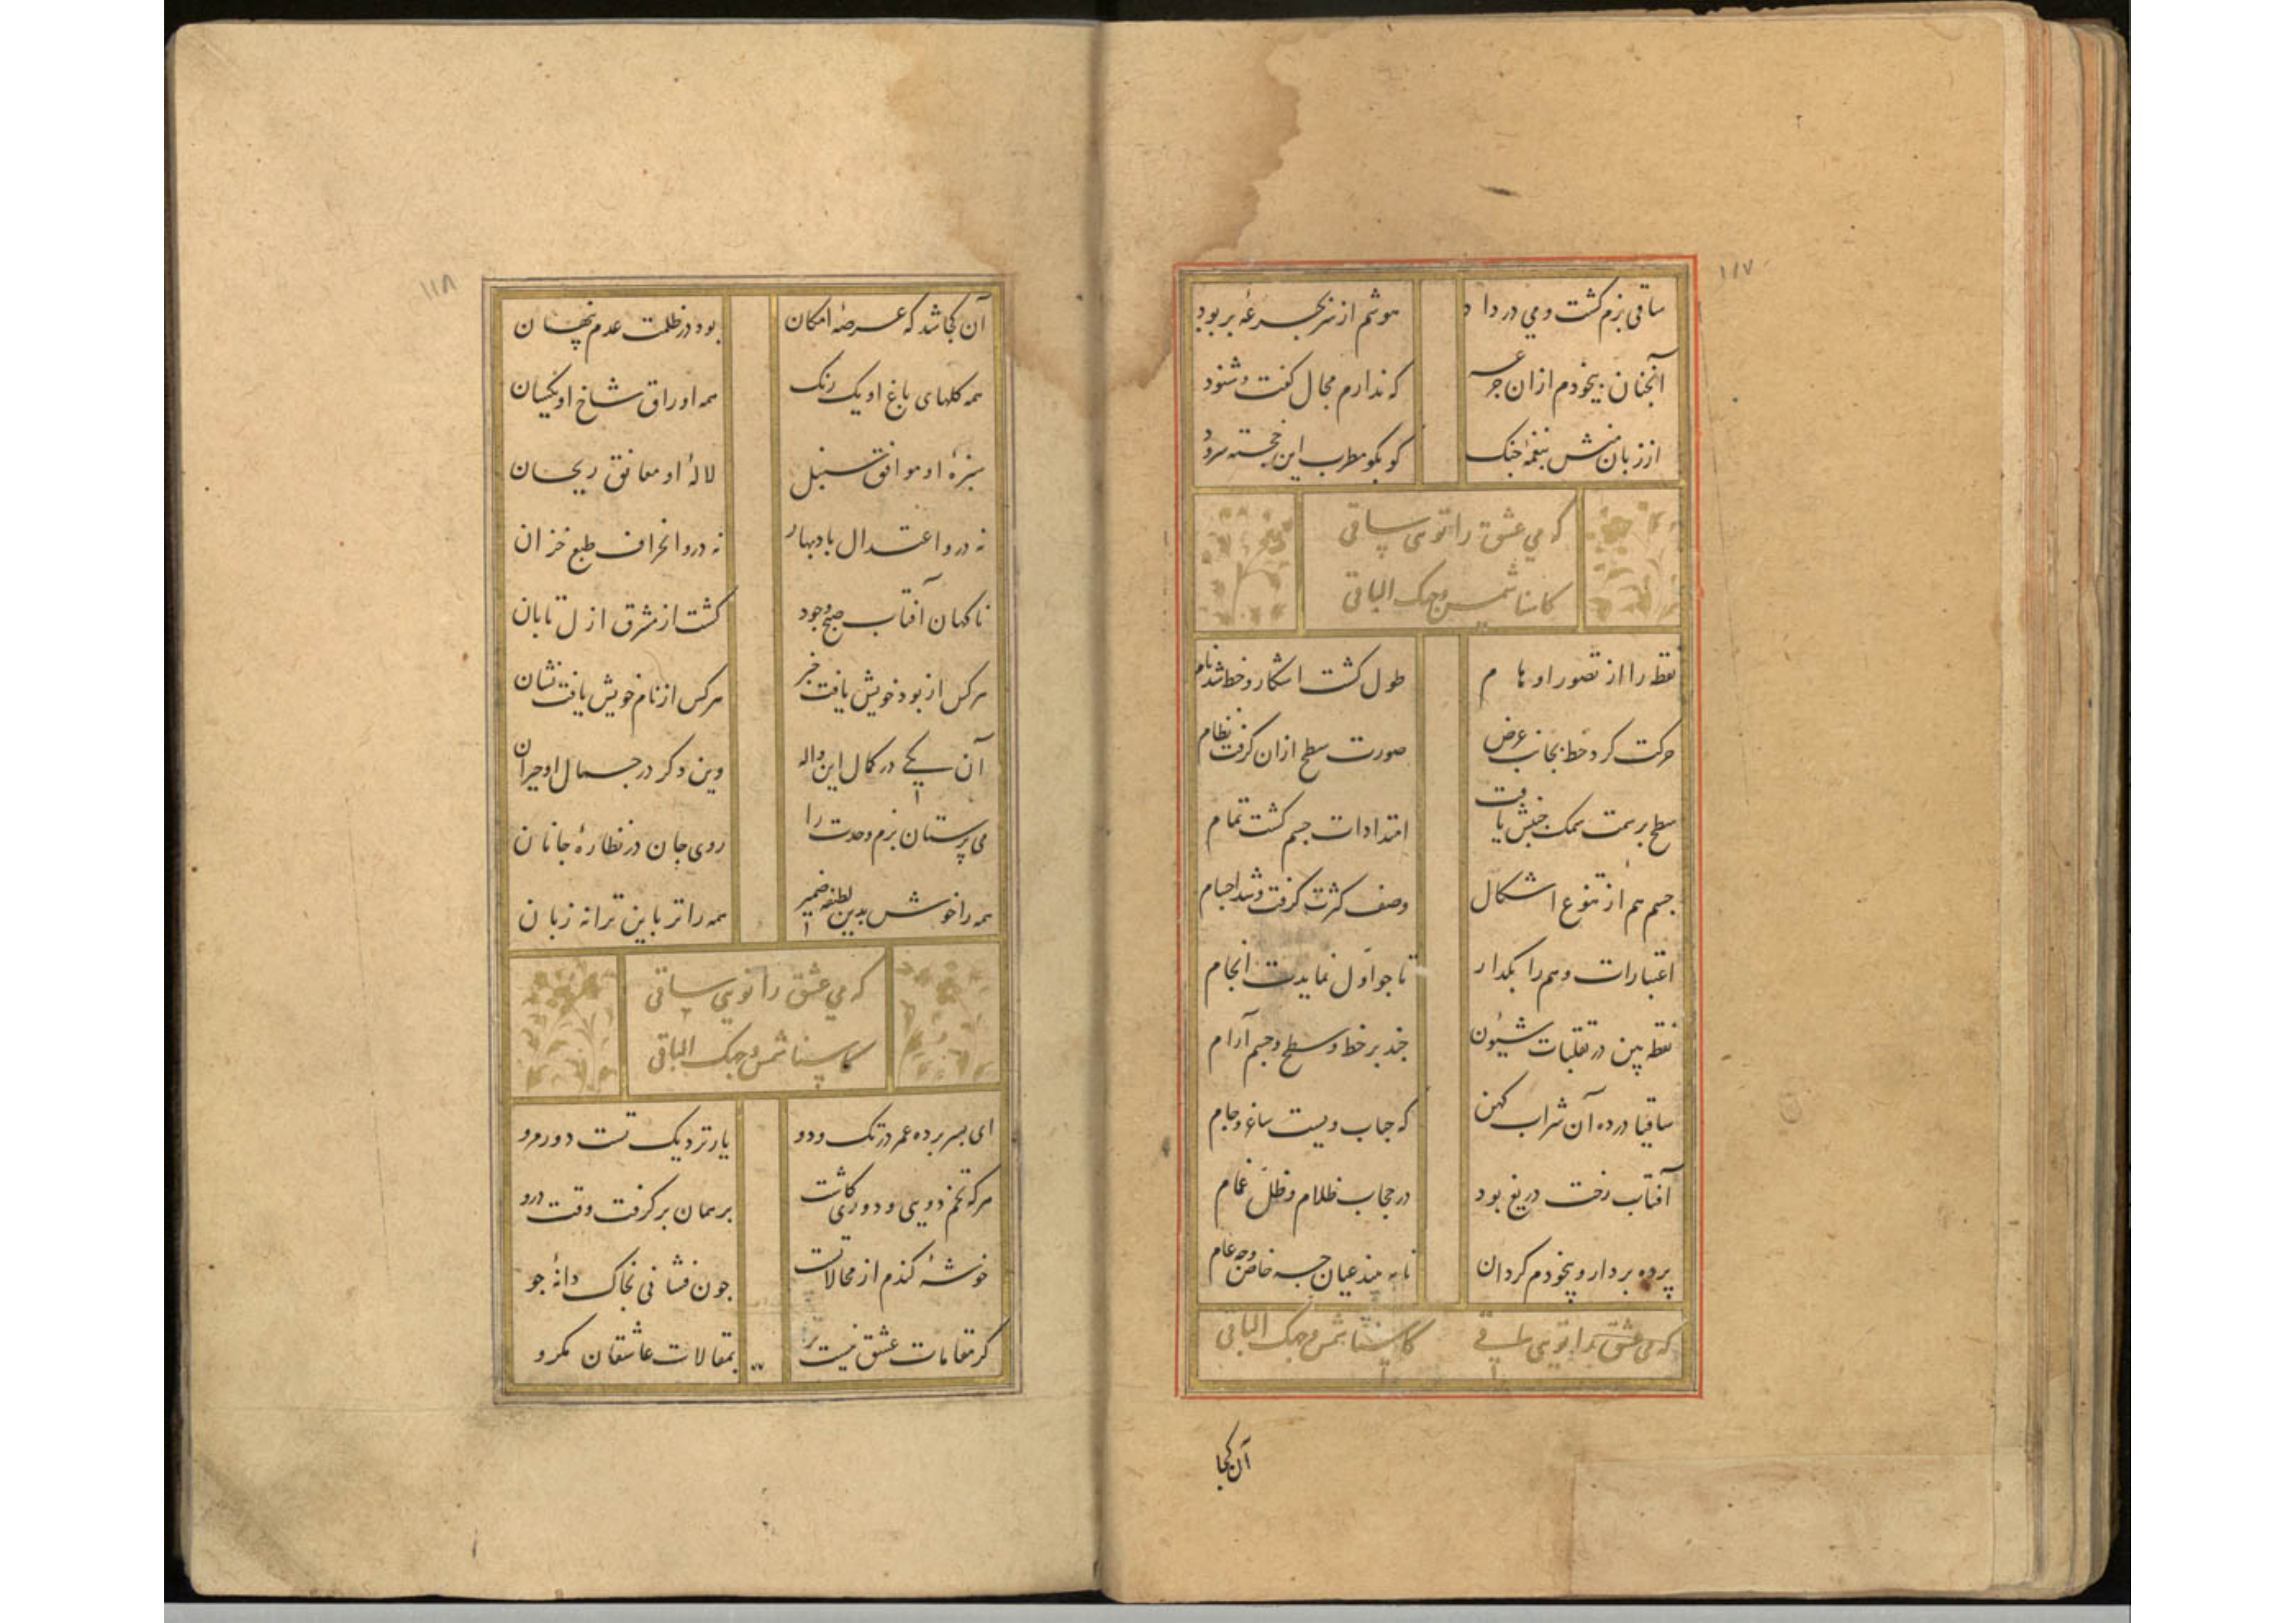 ۱۱۷
ساقی بزم کشت و می در داد هوشم از سر بجرعهٔ بربود
آنجنان بیخودم ازان جرعه که ندارم مجال کفت و شنود
از زبان منش بنغمهٔ جنک کو بکو مطرب این خجسته سرود
که می عشق را تویی ساقی
کاسنا شمس وجهک الباقی
نقطه را از تصور اوهام طول کشت اشکار و خط شد نام
حرکت کرد خط بجانب عرض صورت سطح ازان کرفت نظام
سطح بر سمت سمک جنبش یافت امتدادات جسم کشت تمام
جسم هم از تنوع اشکال وصف کثرت کرفت و شد اجسام
اعتبارات وهم را بکدار تا جو اول نمایدت انجام
نقطه بین در تقلبات شیون جند بر خط و سطح و جسم آرام
ساقیا درده آن شراب کهن که حباب ویست ساغر و جام
آفتاب رخت دریغ بود در حجاب ظلام و ظل غمام
پرده بردار و بیخودم کردان تا ببیند عیان جه خاص و جه عام
که می عشق را تویی ساقی کاسنا شمس وجهک الباقی
آن کجا
۱۱۸
آن کجا شد که عرصهٔ امکان بود در ظلمت عدم پنهان
همه کلهای باغ او یک رنک همه اوراق شاخ او یکسان
سبزهٔ او موافق سنبل لالهٔ او معانق ریحان
نه درو اعتدال باد بهار نه درو انحراف طبع خزان
ناکهان آفتاب صبح وجود کشت از مشرق ازل تابان
هر کس از بود خویش یافت خبر هر کس از نام خویش یافت نشان
آن یکی در کمال این واله وین دکر در جمال او حیران
می پرستان بزم وحدت را روی جان در نظارهٔ جانان
همه را خوش بدین لطیفه ضمیر همه را تر باین ترانه زبان
که می عشق را تویی ساقی
کاسنا شمس وجهک الباقی
ای بسر برده عمر در تک و دو یار نزدیک تست دور مرو
هر که تخم دویی و دوری کاشت بر همان بر کرفت وقت درو
خوشهٔ کندم از محالاتست جون فشانی بخاک دانهٔ جو
کر مقامات عشق نیست بمقالات عاشقان مکرو